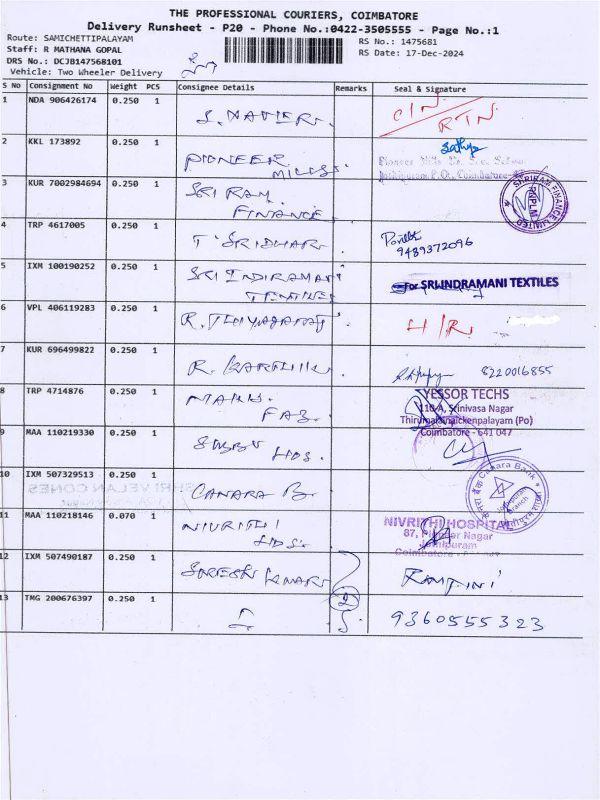 THE PROFESSIONAL COURIERS, COIMBATORE
Delivery Runsheet - P20 - Phone No.:0422-3505555 - Page No.:1
Route: SAMICHETTIPALAYAM
RS No.: 1475681
Staff: R MATHANA GOPAL
RS Date: 17-Dec-2024
DRS No.: DCJB147568101
Vehicle: Two Wheeler Delivery
S No Consignment No Weight PCS Consignee Details Remarks Seal & Signature
1 NDA 906426174 0.250 1 RTN
2 KKL 173892 0.250 1 PIONEER MILLS. Sathya
3 KUR 7002984694 0.250 1 SRI RAM FINANCE SHRIRAM FINANCE LIMITED
4 TRP 4617005 0.250 1 T. SRIDHAR 9489372096
5 IXM 100190252 0.250 1 SRI INDIRAMANI For SRI INDRAMANI TEXTILES
6 VPL 406119283 0.250 1 R. H/R
7 KUR 696499822 0.250 1 R. KARTHIK. 8220016855
8 TRP 4714876 0.250 1 MARK FAB. YESSOR TECHS
110-A, Srinivasa Nagar
Thirumalainaickenpalayam (Po)
Coimbatore - 641 047
9 MAA 110219330 0.250 1 HOS.
10 IXM 507329513 0.250 1 CANARA B. Canara Bank
SHRI VELAN CONES
11 MAA 110218146 0.070 1 NIVRITHI HOS. NIVRITHI HOSPITAL
87, Pioneer Nagar
Jothipuram
12 IXM 507490187 0.250 1 SURESH KUMAR
13 TMG 200676397 0.250 1 2 9360555323